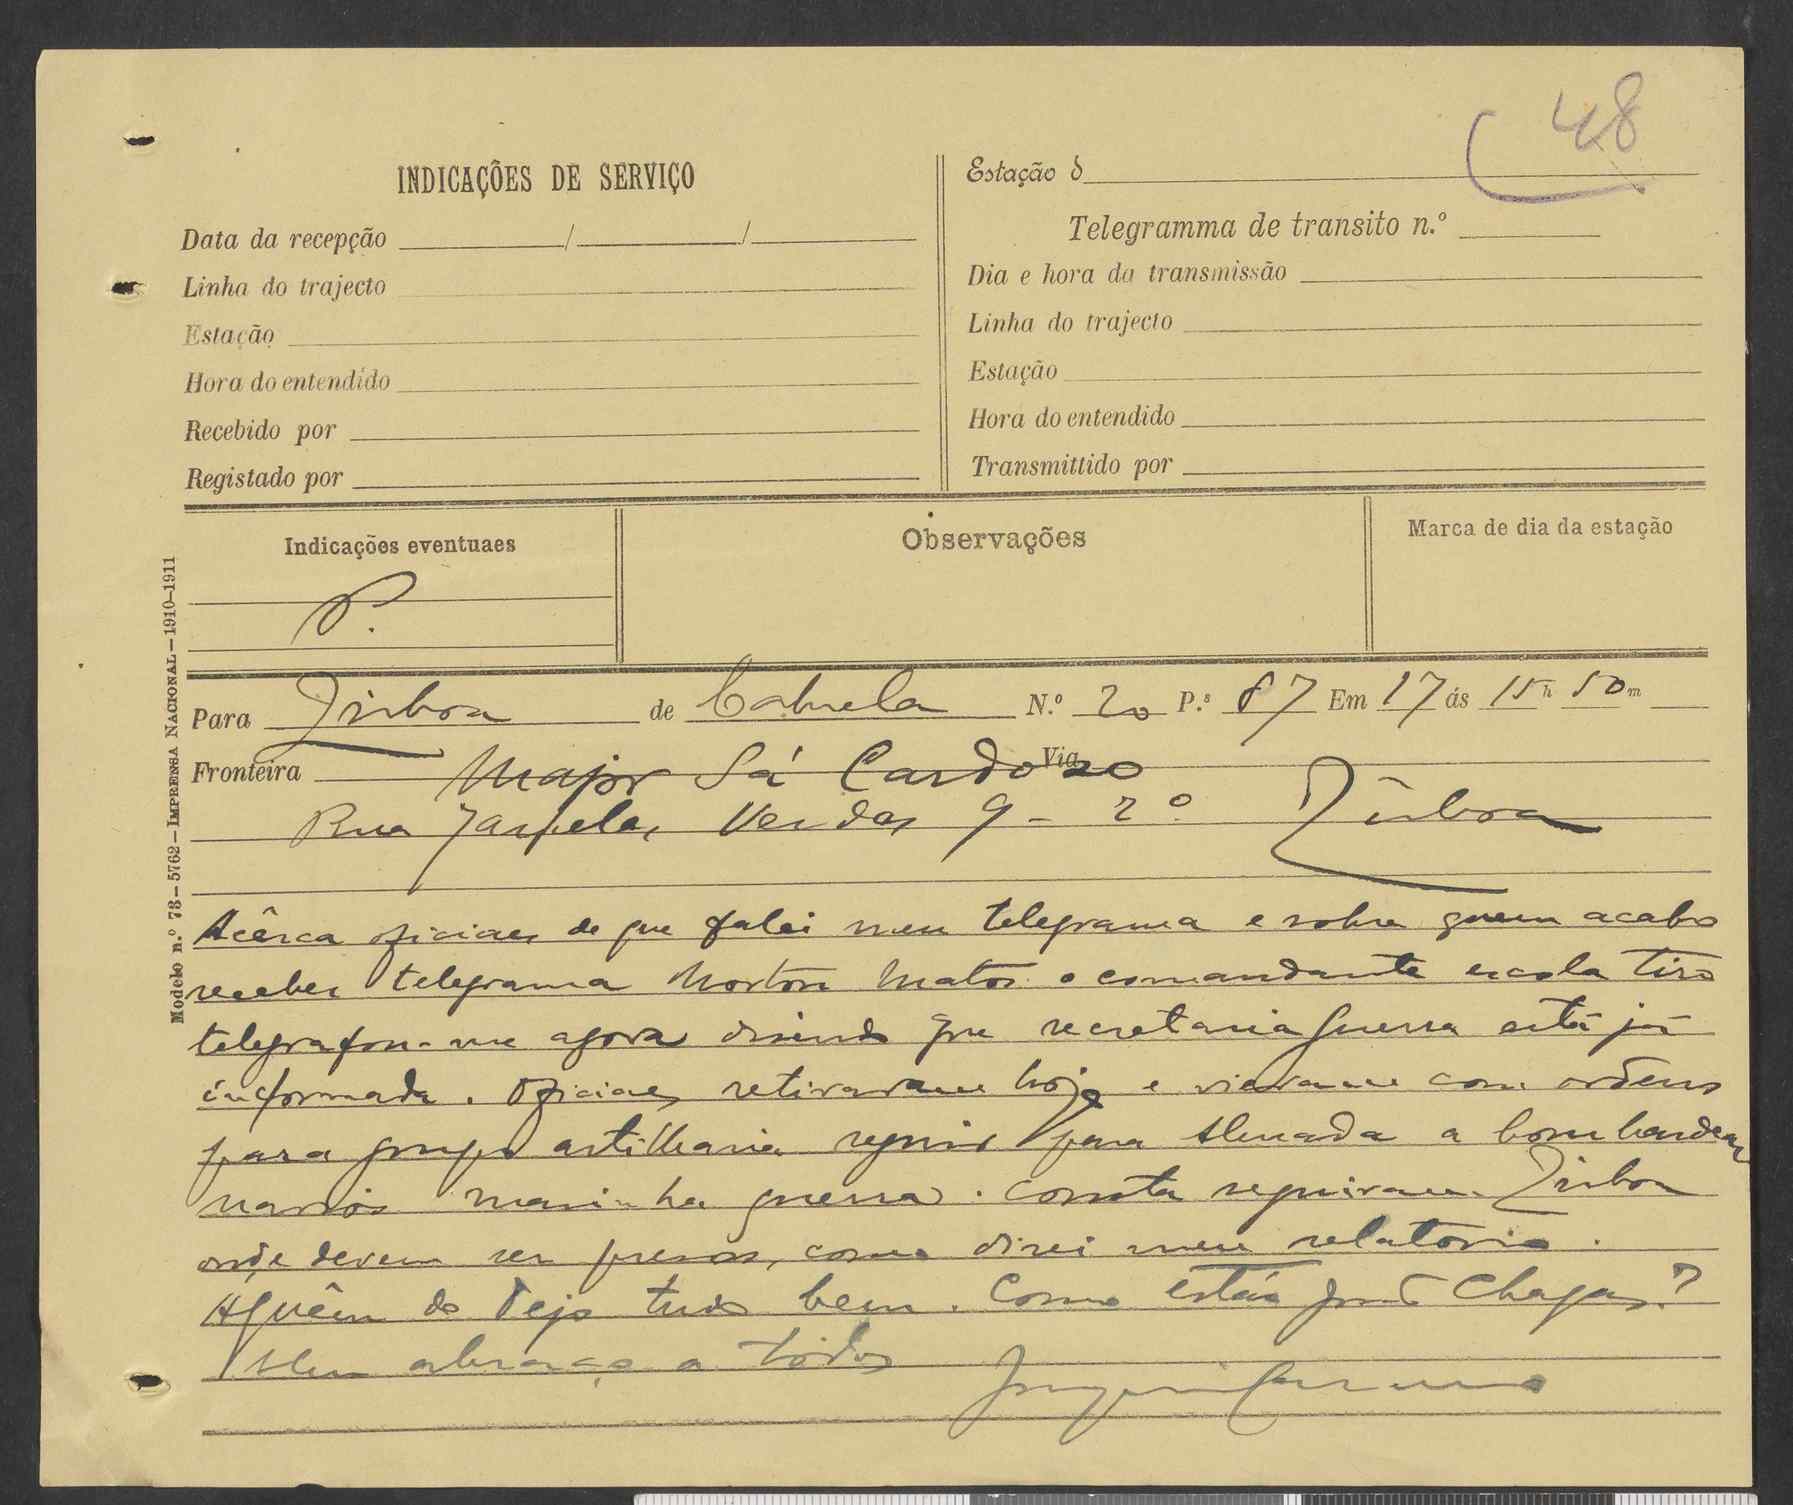 48
INDICAÇÕES DE SERVIÇO
Data da recepção / /
Linha do trajecto
Estação
Hora do entendido
Recebido por
Registado por
Estação d
Telegramma de transito n.º
Dia e hora da transmissão
Linha do trajecto
Estação
Hora do entendido
Transmittido por
Indicações eventuaes
P.
Observações
Marca de dia da estação
Modelo n.º 73 — 5762 — IMPRENSA NACIONAL — 1910-1911
Para Lisboa de Cabrela N.º 20 P.s 87 Em 17 ás 15 h 50 m
Fronteira Via
Major Sá Cardoso
Rua Janelas Verdes 9 - 2º Lisboa
Acêrca oficiaes de que falei meu telegrama e sobre quem acabo
receber telegrama Norton Matos o comandante escola tiro
telegrafou-me agora dizendo que secretaria guerra está já
informada. Oficiaes retiraram hoje e vieram com ordens
para grupo artilharia seguir para Almada a bombardear
navios marinha guerra. Consta seguiram Lisboa
onde devem ser presos, como direi meu relatorio.
Aquêm do Tejo tudo bem. Como está João Chagas?
Um abraço a todos